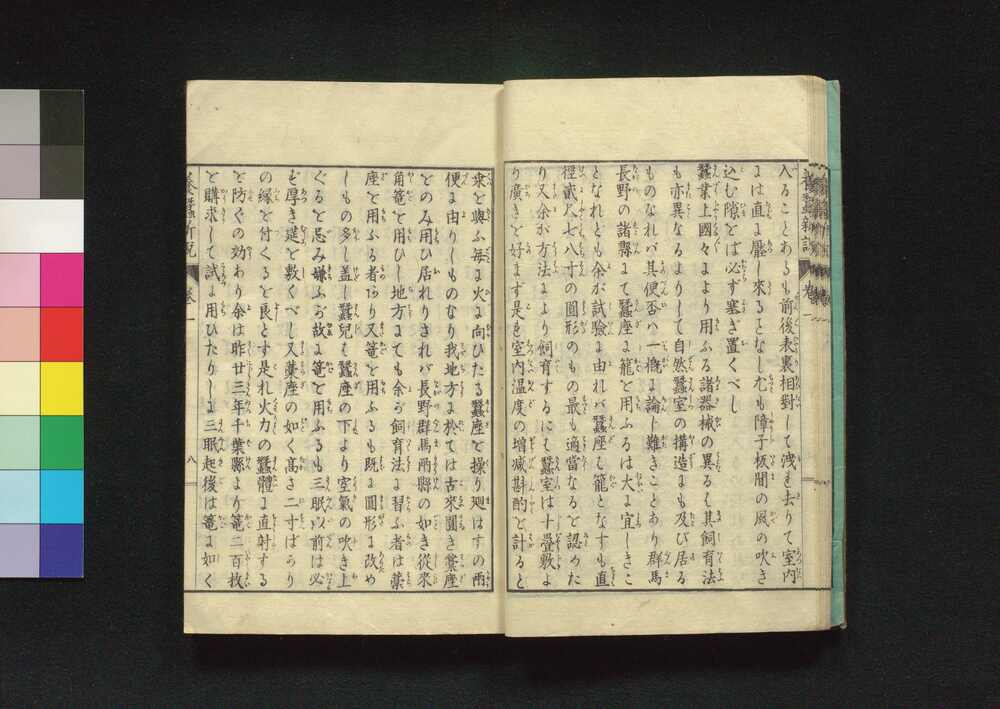 入ることあるも前後表裏相對して洩れ去りて室内
には直に壓し來ることなしむも障子板間の風の吹き
込む隙をば必ず塞ぎ置くべし
蠶業上國々により用ふる諸器械の異るも其飼育法
も亦異なるよりして自然蠶室の構造にも及び居る
ものなれバ其便否ハ一概に論じ難きことあり群馬
長野の諸縣にて蠶座に籠を用ふるは大に宜しきこ
となれども余が試驗に由れバ蠶座も籠となすも直
徑貳尺七八寸の圓形のもの最も適當なると認めた
り又余が方法により飼育するにて蠶室は十疊敷よ
り廣きを好まず是れ室内温度の増減斟酌を計ると
桑を與ふ毎に火に向ひたる蠶座を操り廻はすの兩
便に由りしものなり我地方に於ては古來圓き藁座
をのみ用ひ居れりされバ長野群馬兩縣の如き從來
角篭を用ひし地方にても余が飼育法に習ふ者は藁
座を用ふる者あり又篭を用ふるも既に圓形に改め
しもの多し盖し蠶兒も蠶座の下より空氣の吹き上
ぐるを忌み嫌ふが故に篭を用ふるも三眠以前は必
ず厚き莚を敷くべし又藁座の如く高さ二寸ばかり
の縁を付くるを良とす是れ火力の蠶體に直射する
を防ぐの効あり余は昨廿三年千葉縣より篭二百枚
を購求して試に用ひたりしに三眠起後は篭に如く
卷一
八